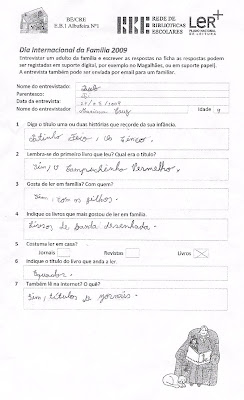 BE/CRE
E.B.1 Albufeira Nº1
REDE DE
BIBLIOTECAS
ESCOLARES
LER+
PLANO NACIONAL
DE LEITURA
Dia Internacional da Família 2009
Entrevistar um adulto da família e escrever as respostas na ficha as respostas podem
ser registadas em suporte digital, por exemplo no Magalhães, ou em suporte papel).
A entrevista também pode ser enviada por email para um familiar.
Nome do entrevistado:
Parentesco:
Data da entrevista: /2009
Nome do entrevistador: Mariana Cruz Idade 9
1 Diga o título uma ou duas histórias que recorde da sua infância.
Patinho Feio, Os Cinco.
2 Lembra-se do primeiro livro que leu? Qual era o título?
Sim, o Capuchinho Vermelho.
3 Gosta de ler em família? Com quem?
Sim, com os filhos.
4 Indique os livros que mais gostou de ler em família.
Livros de banda desenhada.
5 Costuma ler em casa?
Jornais Revistas Livros X
6 Indique o título do livro que anda a ler.
Equador.
7 Também lê na internet? O quê?
Sim, títulos de jornais.